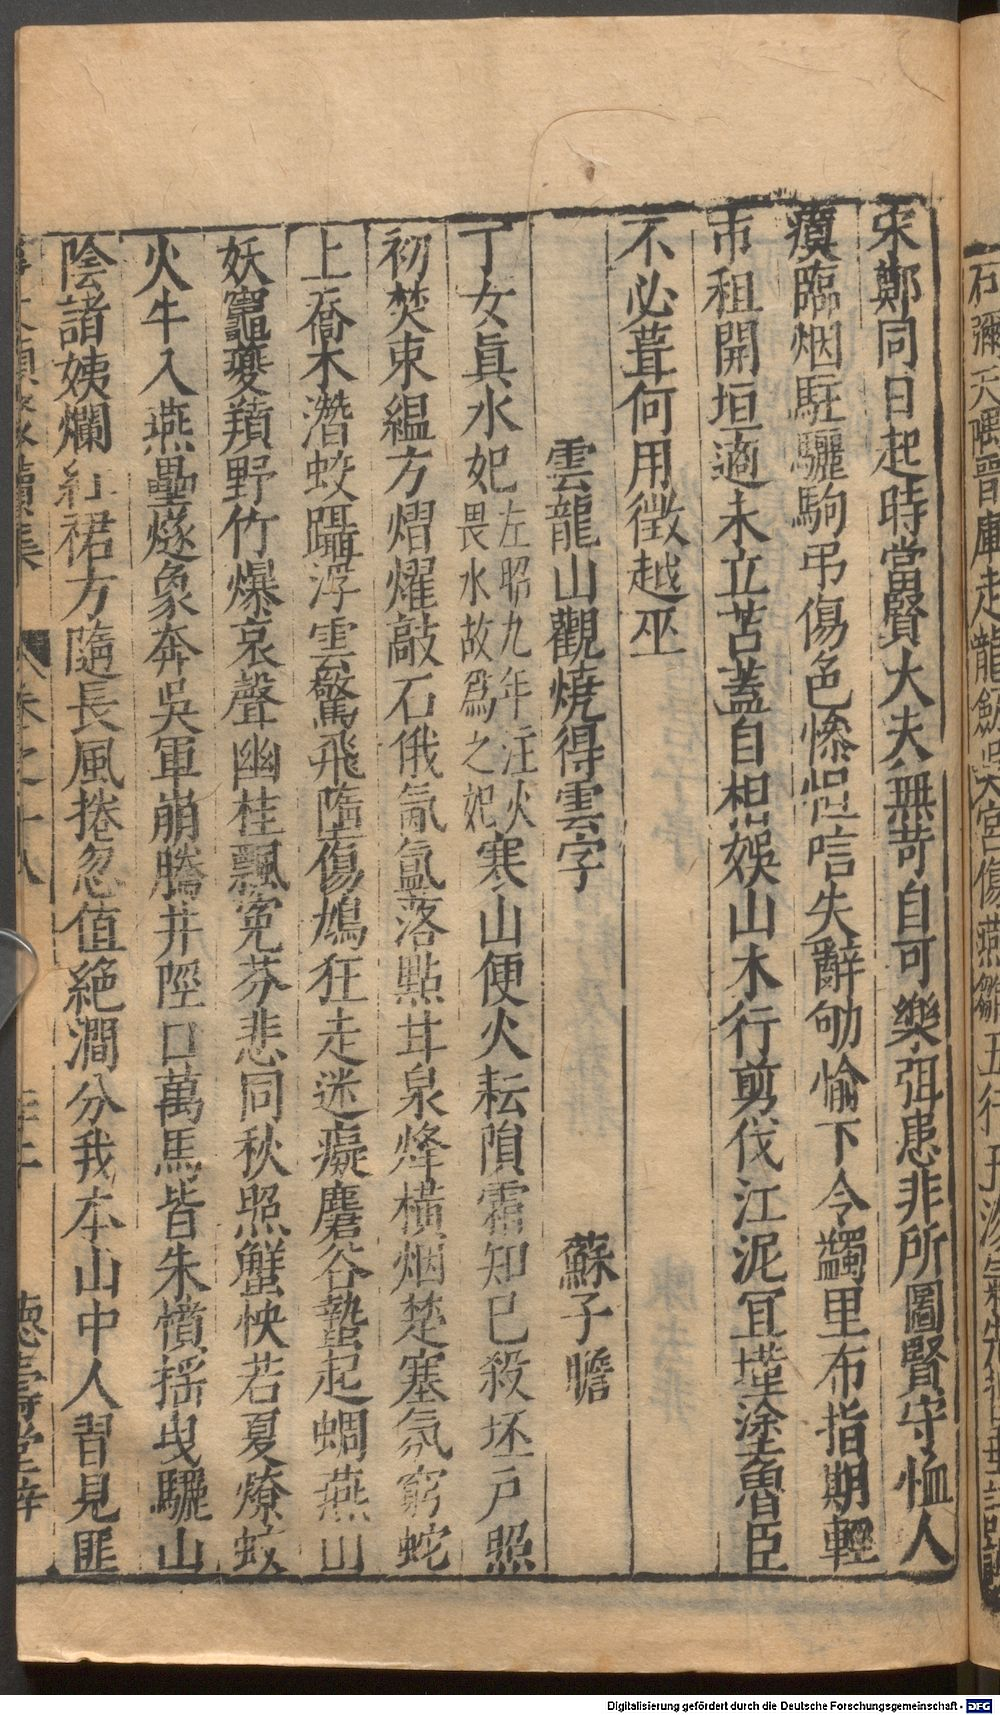 宋鄭同日起時當賢大夫無苛自可樂弭患非所圖賢守恤人
瘼臨烟駐驪駒弔傷色慘怛唁失辭劬愉下令蠲里布指期輕
市租開垣適未立苫蓋自相娛山木行剪伐江泥冝墐塗魯臣
不必葺何用徵越巫
雲龍山觀燒得雲字 蘇子瞻
丁女眞水妃左昭九年注火畏水故爲之妃寒山便火耘隕霜知已殺坯戶照
初焚束緼方熠燿敲石俄氤氳落點甘泉烽橫烟楚塞氛窮蛇
上喬木潛蛟躡浮雲驚飛墮傷鳩狂走迷癡麏谷蟄起蜩燕山
妖竄夔羵野竹爆哀聲幽桂飄冤芬悲同秋照蟹怏若夏燎蚊
火牛入燕壘燧象奔吳軍崩騰井陘口萬馬皆朱幩搖曳驪山
陰諸姨爛紅裙方隨長風捲忽值絕澗分我本山中人習見匪
續集 卷之十八 德壽堂梓
Digitalisierung gefördert durch die Deutsche Forschungsgemeinschaft - DFG